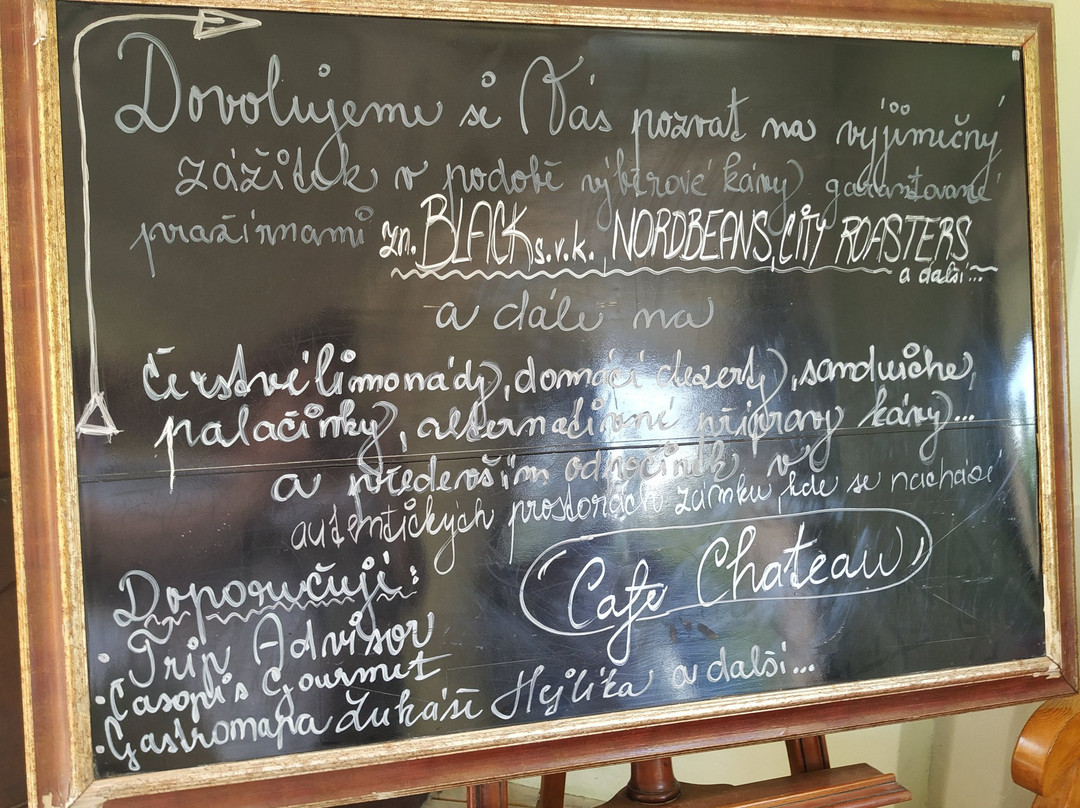 Dovolujeme si Vás pozvat na výjimečný
zážitek v podobě výběrové kávy garantované
pražírnami zn. BLACK s.v.k., NORDBEANS, CITY ROASTERS
a další...
a dále na
Čerstvé limonády, domácí dezerty, sandwiche,
palačinky, alternativní přípravy kávy...
a především odpočinek v
autentických prostorách zámku, kde se nachází
"Cafe Chateau"
Doporučují:
• Trip Advisor
• Časopis Gourmet
• Gastromapa Lukáše Hejlíka a další...